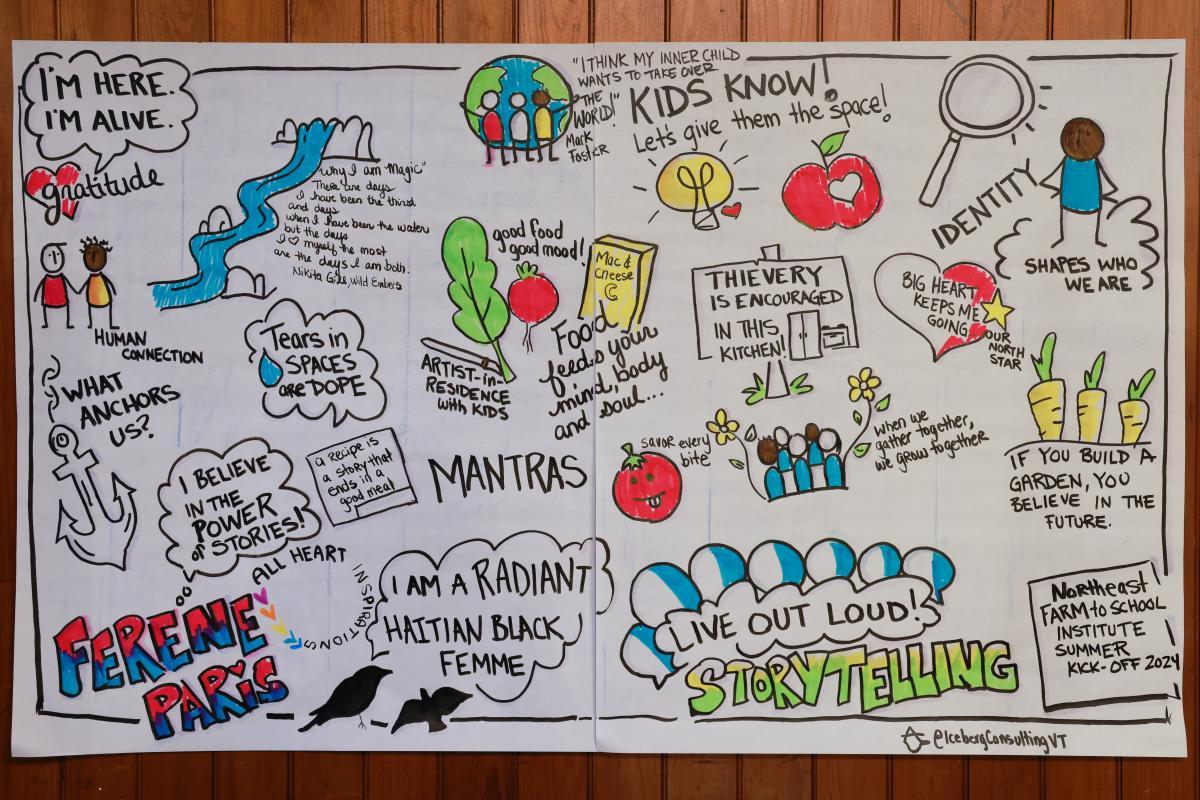 I'M HERE.
I'M ALIVE.
gratitude
"Why I am Magic"
There are days
I have been the thirst
and days
when I have been the water
but the days
I ♡ myself the most
are the days I am both.
Nikita Gill, Wild Embers
HUMAN
CONNECTION
WHAT
ANCHORS
US?
Tears in
SPACES
are DOPE
I BELIEVE
IN THE
POWER
of STORIES!
a recipe is
a story that
ends in a
good meal
ALL HEART
INSPIRATIONS
FERENE
PARIS
"I THINK MY INNER CHILD
WANTS TO TAKE OVER
THE
WORLD!"
Mark
Foster
good food
good mood!
Mac &
Cheese
ARTIST-in-
RESIDENCE
with KIDS
Food
feeds your
mind, body
and soul...
MANTRAS
I AM A RADIANT
HAITIAN BLACK
FEMME
KIDS KNOW!
Let's give them the space!
THIEVERY
IS ENCOURAGED
IN THIS
KITCHEN!
IDENTITY
SHAPES WHO
WE ARE
BIG HEART
KEEPS ME
GOING
OUR
NORTH
STAR
savor every
bite
when we
gather together,
we grow together
IF YOU BUILD A
GARDEN, YOU
BELIEVE IN THE
FUTURE.
LIVE OUT LOUD!
STORYTELLING
Northeast
FARM to SCHOOL
INSTITUTE
SUMMER
KICK-OFF 2024
@IcebergConsultingVT